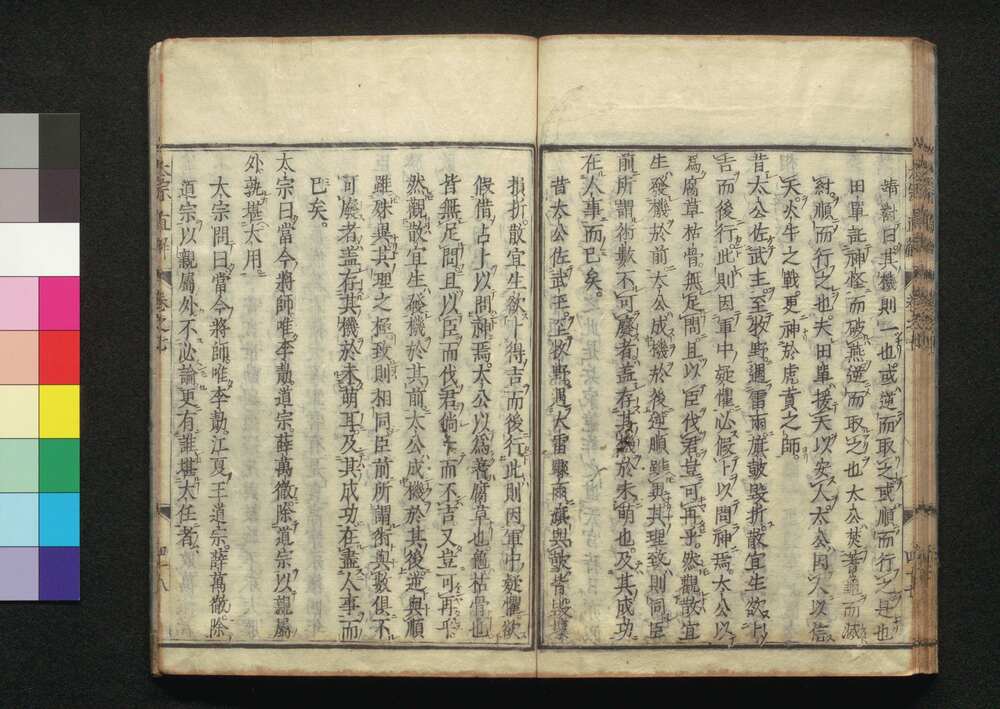 靖對曰其機則一也或逆而取之或順而行之是也
田單託神怪而破燕逆而取之也太公焚蓍龜而滅
紂順而行之也夫田單援天以安人太公因人以信
天火牛之戰更神於虎賁之師
昔太公佐武王至牧野遇雷雨旗鼓毀折散宜生欲卜
吉而後行此則因軍中疑懼必假卜以問神焉太公以
爲腐草枯骨無足問且以臣伐君豈可再乎然觀散宜
生發機於前太公成機於後逆順雖異其理致則同臣
前所謂術數不可廢者蓋存其機於未萌也及其成功
在人事而已矣
昔太公佐武王至牧野遇大雷驟雨旗與鼓皆毀壞
損折散宜生欲卜得吉而後行此則因軍中疑懼欲
假借占卜以問神焉太公以爲蓍腐草也龜枯骨也
皆無足問且以臣而伐君倘卜而不吉又豈可再乎
然觀散宜生發機於其前太公成機於其後逆與順
雖殊異其理之極致則相同臣前所謂術與數俱不
可廢者蓋存其機於未萌耳及其成功在盡人事而
已矣
太宗曰當今將帥唯李勣道宗薛萬徹除道宗以親屬
外孰堪大用
太宗問曰當今將帥唯李勣江夏王道宗薛萬徹除
道宗以親屬外不必論更有誰堪大任者
太宗直解 卷之七 四十八